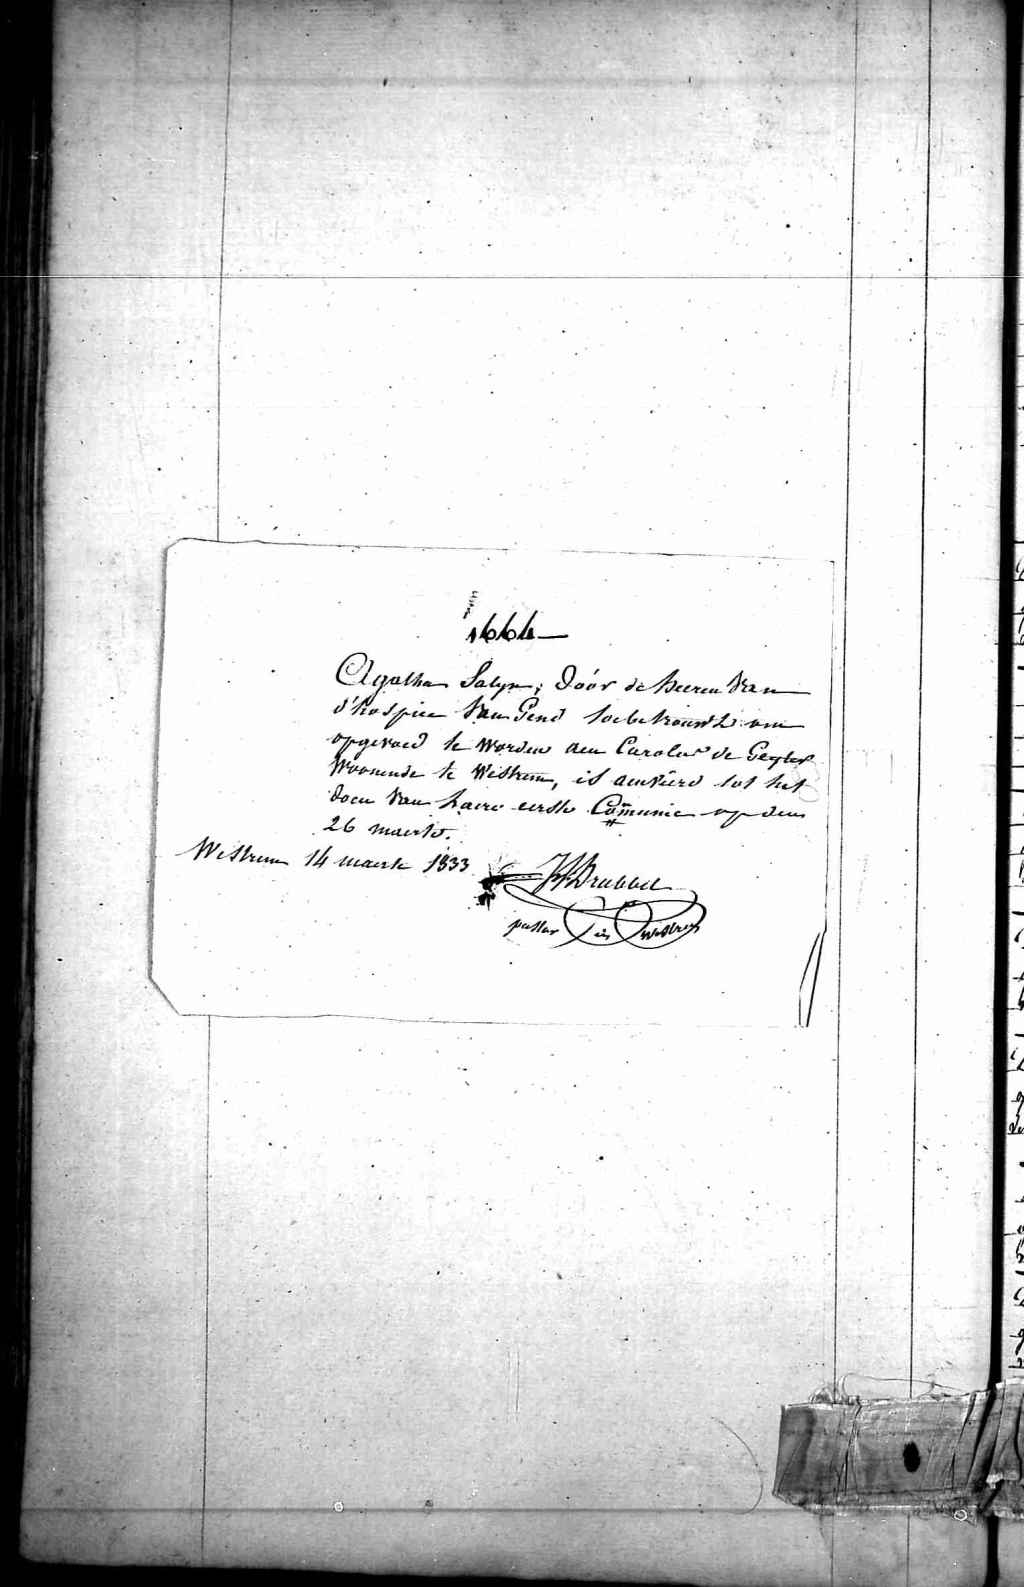 1664
Agatha Salyn; door de heeren van
d'hospice van Gend toebetrouwt om
opgevoed te worden aen Carolus de Geyter
woonende te Westrem, is aenveird tot het
doen van haere eerste Com̅unie op den
26 maerte.
Westrem 14 maerte 1833
Brabbel
pastor in Westrem